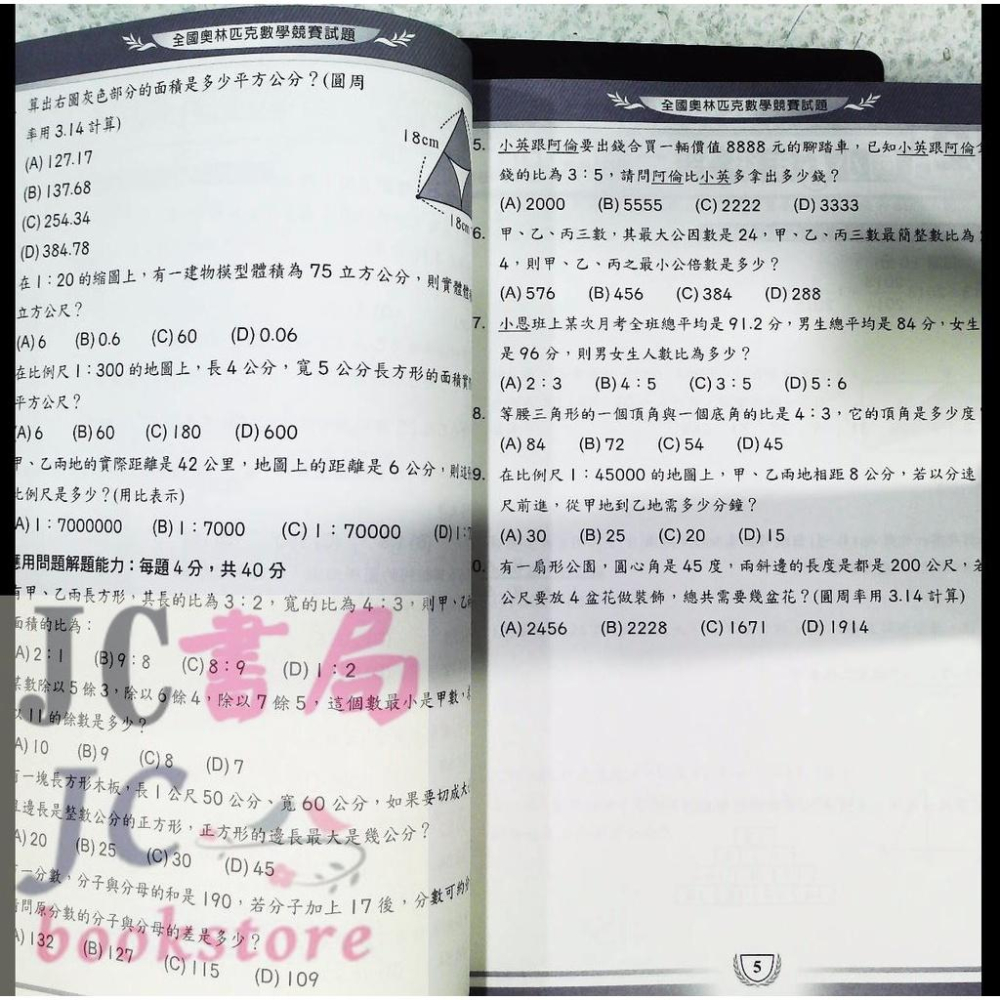 全國奧林匹克數學競賽試題
算出右圖灰色部分的面積是多少平方公分？(圓周
率用 3.14 計算)
18cm
18cm
(A) 127.17
(B) 137.68
(C) 254.34
(D) 384.78
在 1：20 的縮圖上，有一建物模型體積為 75 立方公分，則實體體
立方公尺？
(A) 6 (B) 0.6 (C) 60 (D) 0.06
在比例尺 1：300 的地圖上，長 4 公分，寬 5 公分長方形的面積實
平方公尺？
(A) 6 (B) 60 (C) 180 (D) 600
甲、乙兩地的實際距離是 42 公里，地圖上的距離是 6 公分，則
比例尺是多少？(用比表示)
(A) 1：7000000 (B) 1：7000 (C) 1：70000 (D) 1：
應用問題解題能力：每題 4 分，共 40 分
有甲、乙兩長方形，其長的比為 3：2，寬的比為 4：3，則甲、乙
面積的比為：
(A) 2：1 (B) 9：8 (C) 8：9 (D) 1：2
某數除以 5 餘 3，除以 6 餘 4，除以 7 餘 5，這個數最小是甲數，
以 11 的餘數是多少？
(A) 10 (B) 9 (C) 8 (D) 7
有一塊長方形木板，長 1 公尺 50 公分、寬 60 公分，如果要切成大
且邊長是整數公分的正方形，正方形的邊長最大是幾公分？
(A) 20 (B) 25 (C) 30 (D) 45
有一分數，分子與分母的和是 190，若分子加上 17 後，分數可約
請問原分數的分子與分母的差是多少？
(A) 132 (B) 127 (C) 115 (D) 109
JC書局
JC
bookstore
全國奧林匹克數學競賽試題
5. 小英跟阿倫要出錢合買一輛價值 8888 元的腳踏車，已知小英跟阿倫
錢的比為 3：5，請問阿倫比小英多拿出多少錢？
(A) 2000 (B) 5555 (C) 2222 (D) 3333
6. 甲、乙、丙三數，其最大公因數是 24，甲、乙、丙三數最簡整數比為
4，則甲、乙、丙之最小公倍數是多少？
(A) 576 (B) 456 (C) 384 (D) 288
7. 小恩班上某次月考全班總平均是 91.2 分，男生總平均是 84 分，女生
是 96 分，則男女生人數比為多少？
(A) 2：3 (B) 4：5 (C) 3：5 (D) 5：6
8. 等腰三角形的一個頂角與一個底角的比是 4：3，它的頂角是多少度
(A) 84 (B) 72 (C) 54 (D) 45
9. 在比例尺 1：45000 的地圖上，甲、乙兩地相距 8 公分，若以分速
尺前進，從甲地到乙地需多少分鐘？
(A) 30 (B) 25 (C) 20 (D) 15
0. 有一扇形公園，圓心角是 45 度，兩斜邊的長度是都是 200 公尺，若
公尺要放 4 盆花做裝飾，總共需要幾盆花？(圓周率用 3.14 計算)
(A) 2456 (B) 2228 (C) 1671 (D) 1914
5